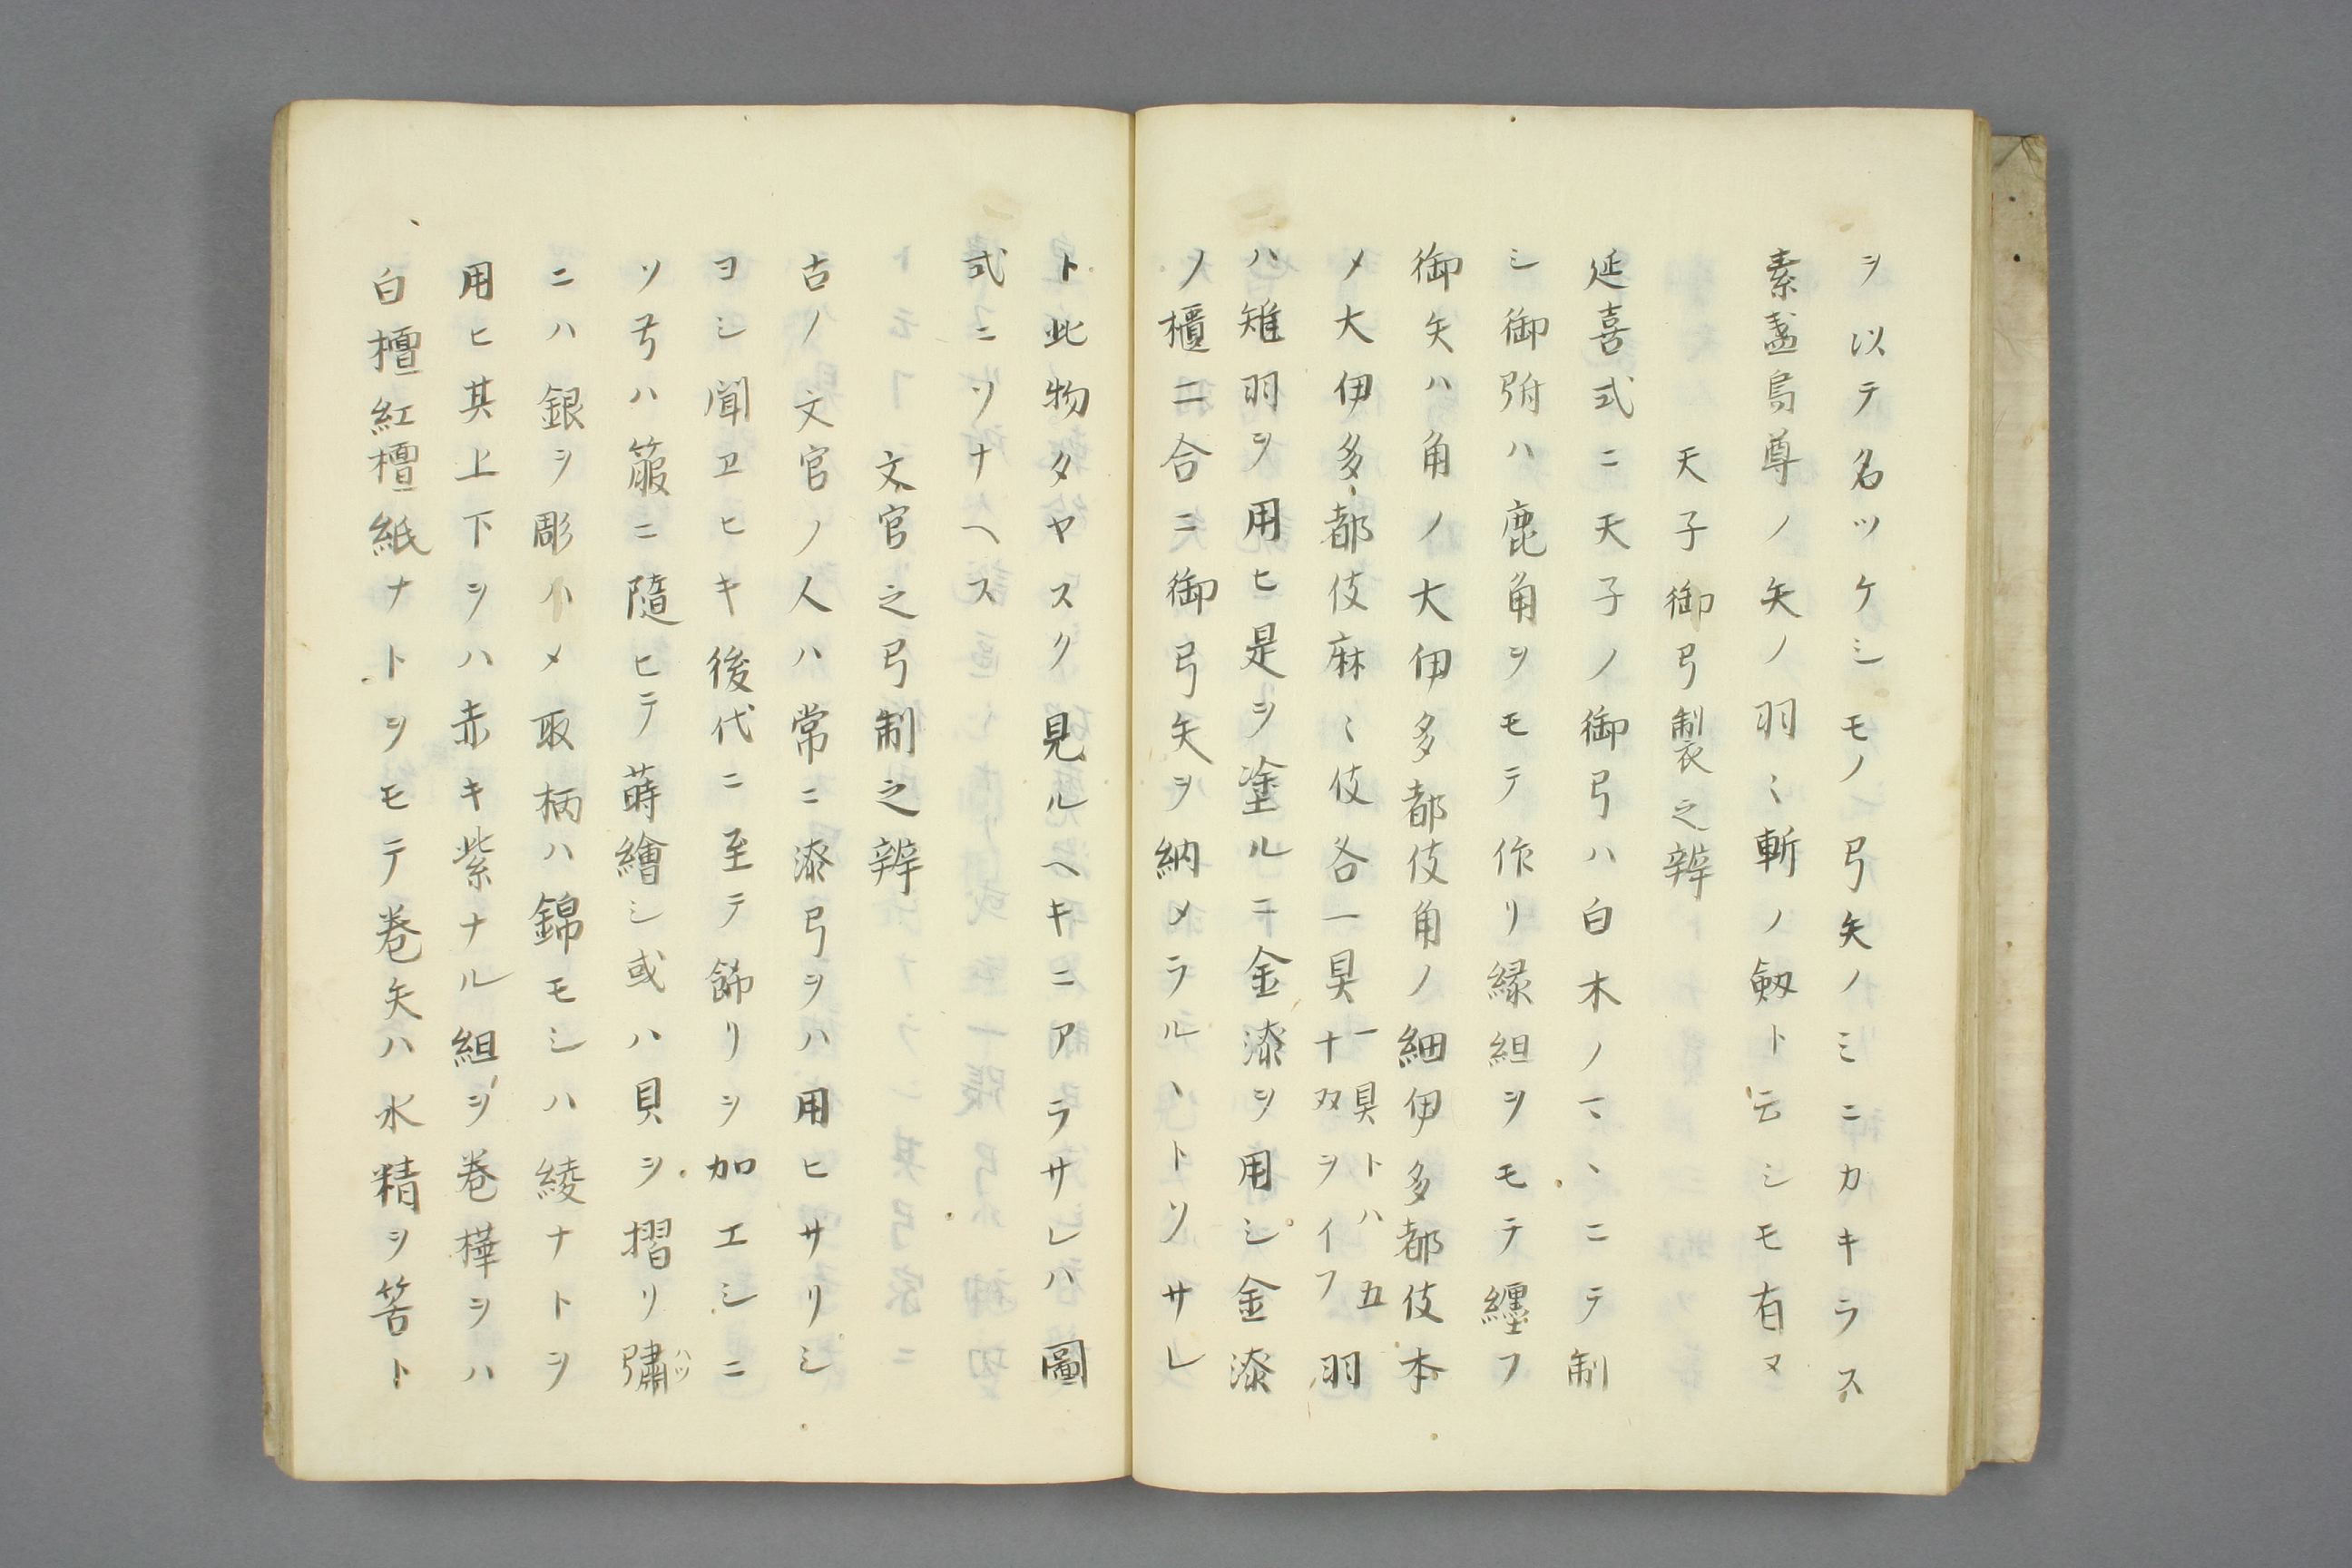 ヲ以テ名ツケシモノ弓矢ノミニカキラス
素盞烏尊ノ矢ノ羽〻斬ノ劔ト云シモ有ヌ
天子御弓製之辨
延喜式ニ天子ノ御弓ハ白木ノマヽニテ制
シ御弣ハ鹿角ヲモテ作リ緑組ヲモテ纒フ
御矢ハ角ノ大伊多都伎角ノ細伊多都伎木
メ大伊多都伎麻〻伎各一具一具トハ五十双ヲイフ羽
ハ雉羽ヲ用ヒ是ヲ塗ルニ金漆ヲ用シ金漆
ノ櫃二合ニ御弓矢ヲ納メラルヽトソサレ
ト此物タヤスク見ルヘキニアラサレハ圖
式ニソナヘス
文官之弓制之辨
古ノ文官ノ人ハ常ニ漆弓ヲハ用ヒサリシ
ヨシ聞ヱヒキ後代ニ至テ飾リヲ加エシニ
ソ弓ハ箙ニ隨ヒテ蒔繪シ或ハ貝ヲ摺リ彇ハツ
ニハ銀ヲ彫ハメ取柄ハ錦モシハ綾ナトヲ
用ヒ其上下ヲハ赤キ紫ナル組ヲ卷樺ヲハ
白檀紅檀紙ナトヲモテ卷矢ハ水精ヲ筈ト